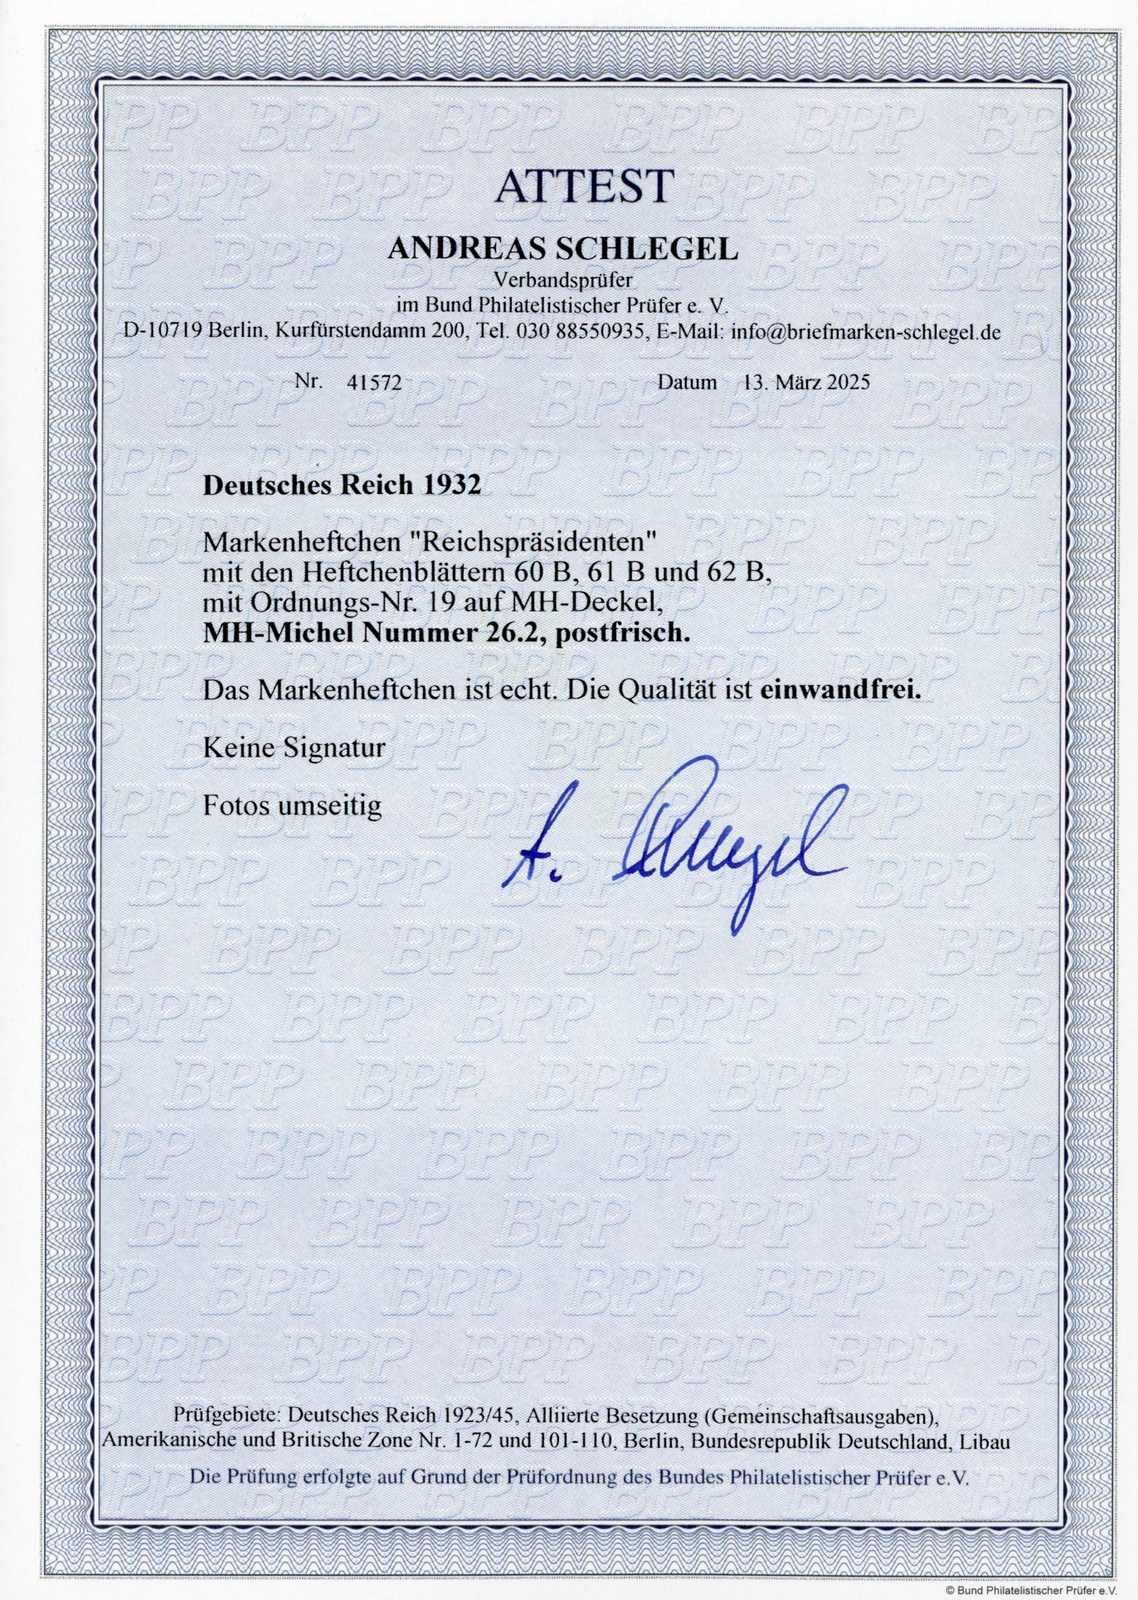 ATTEST
ANDREAS SCHLEGEL
Verbandsprüfer
im Bund Philatelistischer Prüfer e. V.
D-10719 Berlin, Kurfürstendamm 200, Tel. 030 88550935, E-Mail: info@briefmarken-schlegel.de
Nr. 41572 Datum 13. März 2025
Deutsches Reich 1932
Markenheftchen "Reichspräsidenten"
mit den Heftchenblättern 60 B, 61 B und 62 B,
mit Ordnungs-Nr. 19 auf MH-Deckel,
MH-Michel Nummer 26.2, postfrisch.
Das Markenheftchen ist echt. Die Qualität ist einwandfrei.
Keine Signatur
Fotos umseitig
A. Schlegel
Prüfgebiete: Deutsches Reich 1923/45, Alliierte Besetzung (Gemeinschaftsausgaben),
Amerikanische und Britische Zone Nr. 1-72 und 101-110, Berlin, Bundesrepublik Deutschland, Libau
Die Prüfung erfolgte auf Grund der Prüfordnung des Bundes Philatelistischer Prüfer e.V.
© Bund Philatelistischer Prüfer e.V.